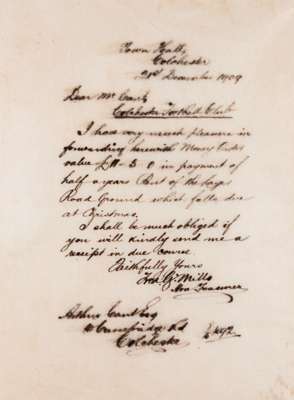 Town Hall,
Colchester
21st December 1909
Dear Mr Cant,
Colchester Football Club
I have very much pleasure in
forwarding herewith Money Order
value £11-5-0 in payment of
half a years Rent of the Layer
Road Ground which falls due
at Christmas.
I shall be much obliged if
you will kindly send me a
receipt in due course
Faithfully Yours
Mills
Hon Treasurer
Arthur Cant Esq
Rd
Colchester